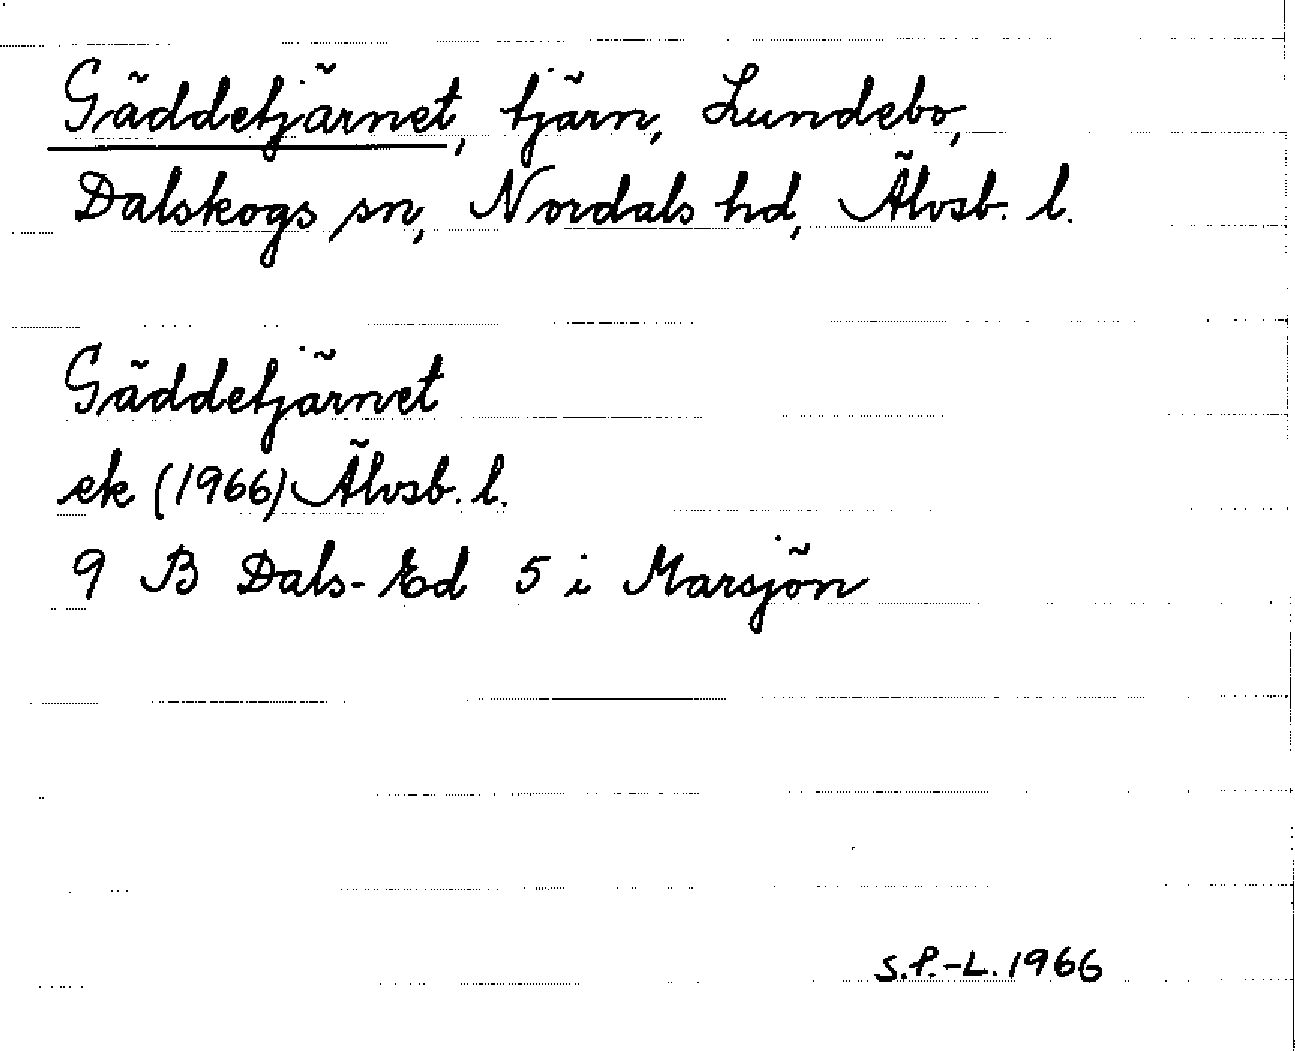 Gäddetjärnet, tjärn, Lundebo,
Dalskogs sn, Nordals hd, Älvsb. l.
Gäddetjärnet
ek (1966) Älvsb. l.
9 B Dals-Ed 5 i Marsjön
S.P.-L. 1966